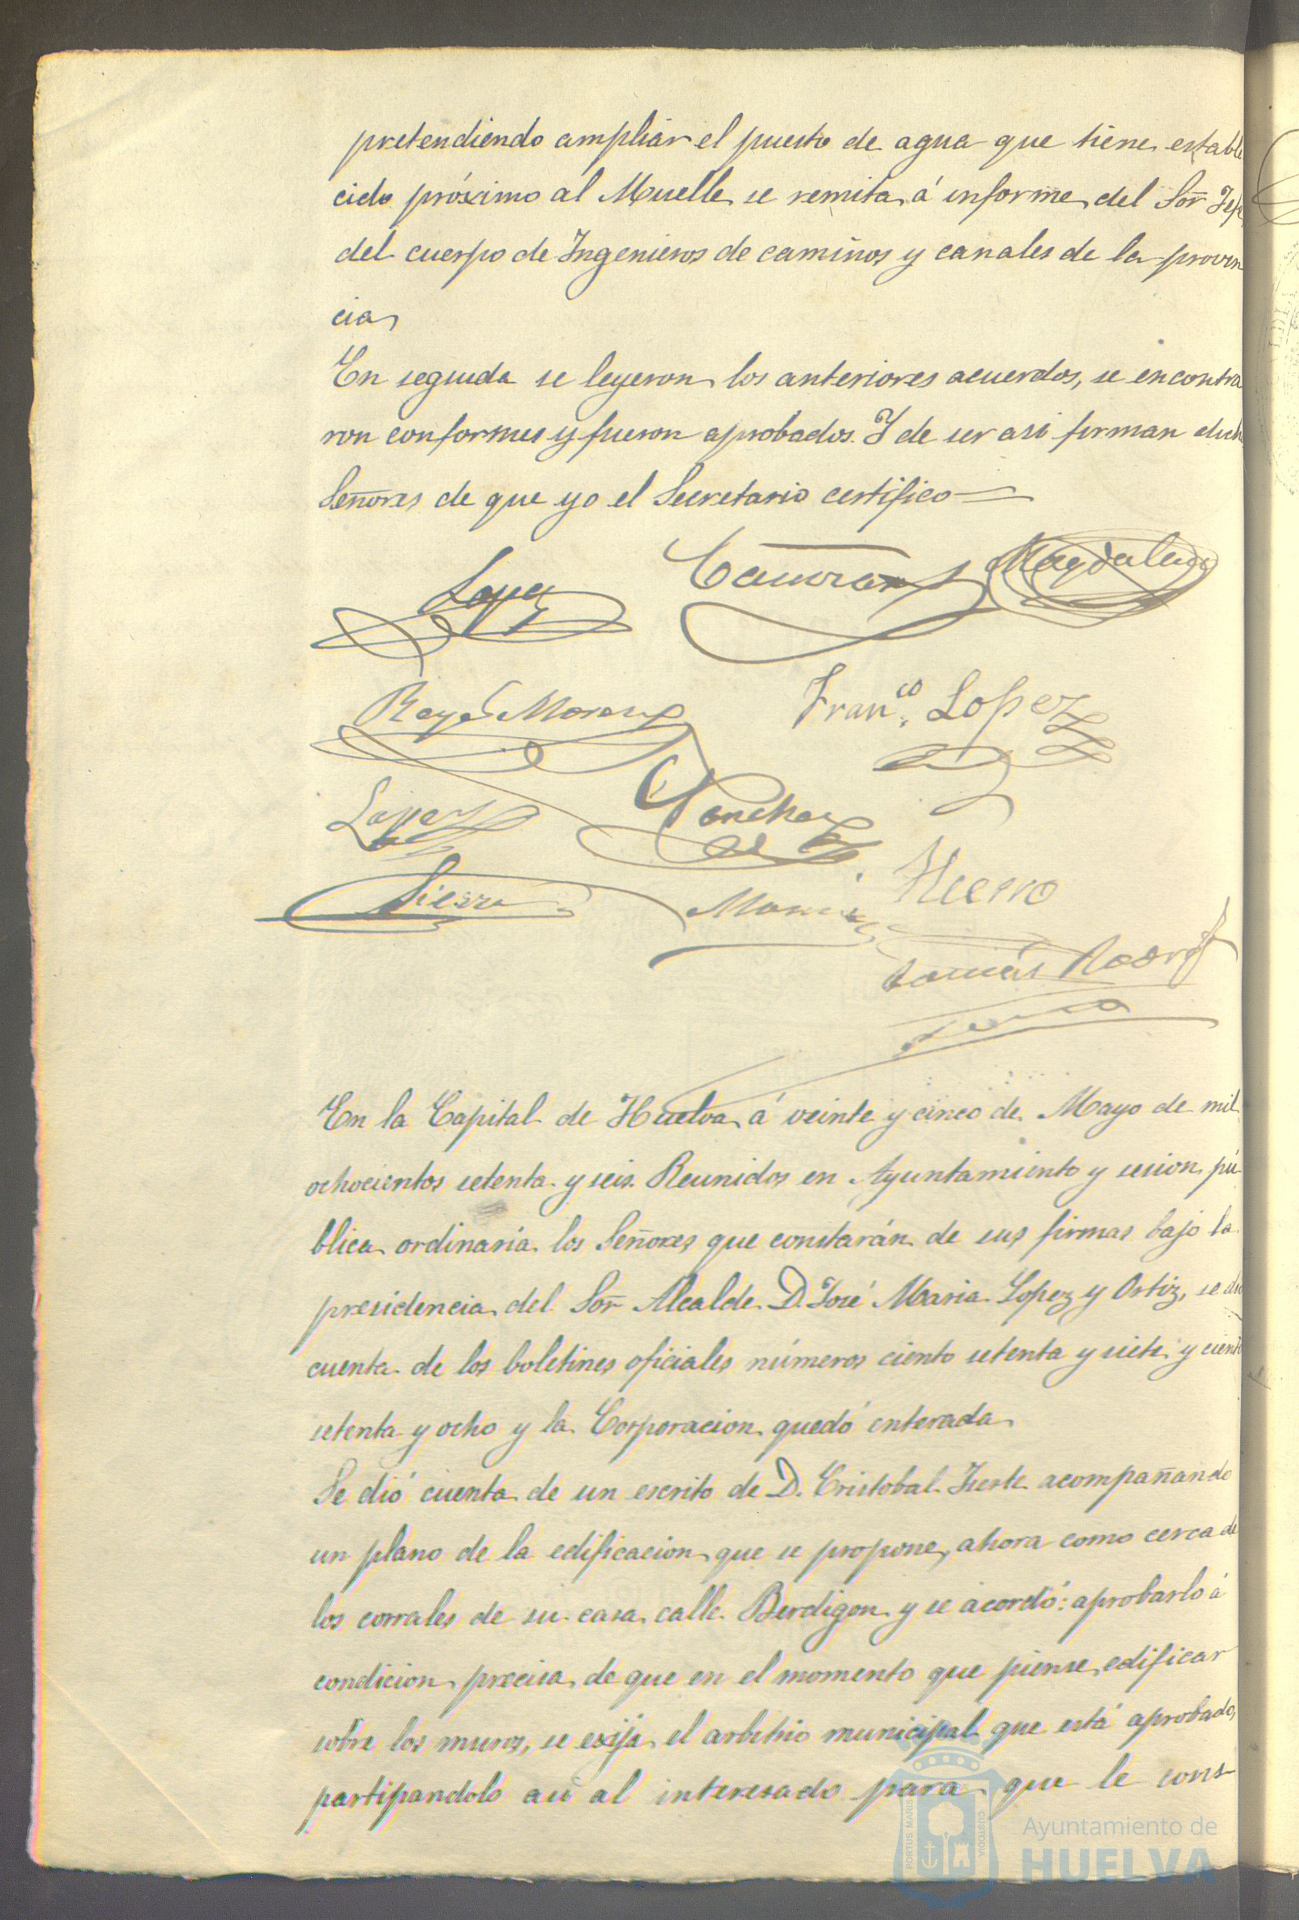 pretendiendo ampliar el puesto de agua que tiene estable
cido próximo al Muelle se remita á informe del Sor Jefe
del cuerpo de Ingenieros de caminos y canales de la provin
cia
En seguida se leyeron los anteriores acuerdos, se encontra
ron conformes y fueron aprobados. Y de ser asi firman dichos
Señores de que yo el Secretario certifico
Lopez
Magdalena
Reyes Moreno
Franco. Lopez
Lopez
Sanchez
Sierra
Hierro
Tomás Rodrig
En la Capital de Huelva á veinte y cinco de Mayo de mil
ochocientos setenta y seis. Reunidos en Ayuntamiento y sesion pú
blica ordinaria los Señores que constarán de sus firmas bajo la
presidencia del Sor Alcalde D. José Maria Lopez y Ortiz, se dió
cuenta de los boletines oficiales números ciento setenta y siete y ciento
setenta y ocho y la Corporacion quedó enterada
Se dió cuenta de un escrito de D. Cristobal acompañando
un plano de la edificacion que se propone, ahora como cerca de
los corrales de su casa calle Berdigon y se acordó: aprobarlo á
condicion precisa de que en el momento que piense edificar
sobre los muros, se exija el arbitrio municipal que está aprobado,
partipandolo asi al interesado para que le cons
PORTUS MARIS
CUSTODIA
Ayuntamiento de
HUELVA